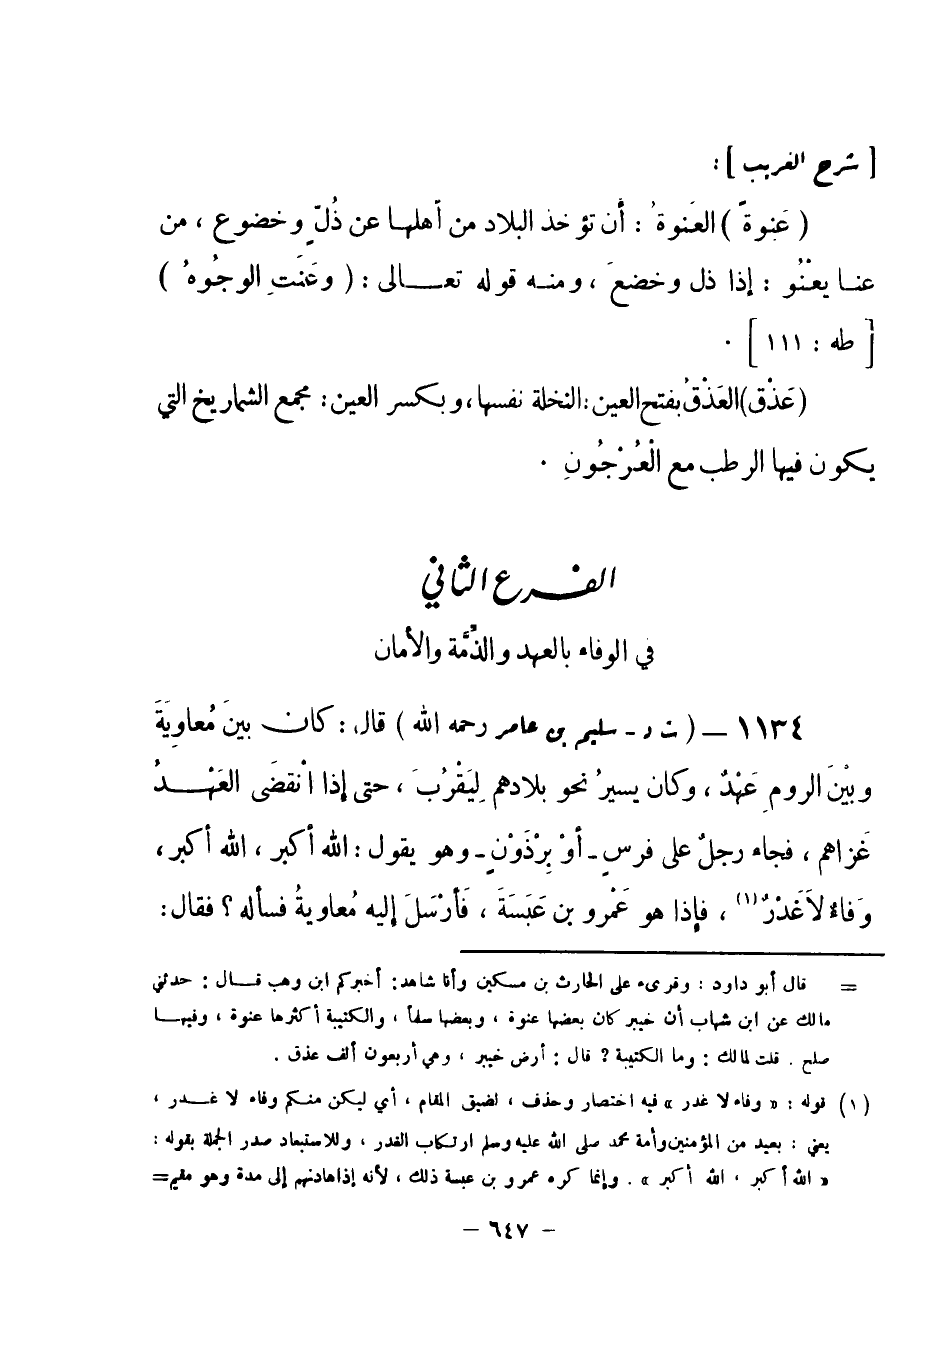 [ شرح الغريب ] :
( عَنوةً ) العَنوةُ : أن تؤخذ البلاد من أهلها عن ذُلّ وخضوع ، من
عنا يعْنُو : إذا ذل وخضعَ ، ومنه قوله تعالى : ( وعَنَتِ الوجُوهُ )
[ طه : ١١١ ] .
( عَذْق ) العَذْقُ بفتح العين : النخلة نفسها ، وبكسر العين : مجمع الشماريخ التي
يكون فيها الرطب مع الْعُرْجُونِ .
الفرع الثاني
في الوفاء بالعهد والذِّمَّة والأمان
١١٣٤ – ( ت د - سليم بن عامر رحمه الله ) قال : كان بينَ مُعاوِيَةَ
وبيْنَ الرومِ عَهْدٌ ، وكان يسيرُ نحو بلادهم لِيَقْرُبَ ، حتى إذا انْقضَى العَهْدُ
غَزاهم ، فجاء رجلٌ على فرسٍ - أوْ بِرْذَوْنٍ - وهو يقول : الله أكبر ، الله أكبر ،
وَفاءٌ لاَ غَدْرٌ (١) ، فإذا هو عَمْرو بن عَبَسَةَ ، فَأرْسَلَ إليه مُعاويةُ فسأله ؟ فقال :
= قال أبو داود : وقرىء على الحارث بن مسكين وأنا شاهد : أخبركم ابن وهب قال : حدثني
مالك عن ابن شهاب أن خيبر كان بعضها عنوة ، وبعضها سفاً ، والكتيبة أكثرها عنوة ، وفيها
صلح . قلت لمالك : وما الكتيبة ؟ قال : أرض خيبر ، وهي أربعون ألف عذق .
(١) قوله : « وفاء لا غدر » فيه اختصار وحذف ، لضيق المقام ، أي ليكن منكم وفاء لا غدر ،
يعني : بعيد من المؤمنين وأمة محمد صلى الله عليه وسلم ارتكاب الغدر ، وللاستبعاد صدر الجملة بقوله :
« الله أكبر ، الله أكبر » . وإنما كره عمرو بن عبسة ذلك ، لأنه إذا هادنهم إلى مدة وهو مقيم =
– ٦٤٧ –